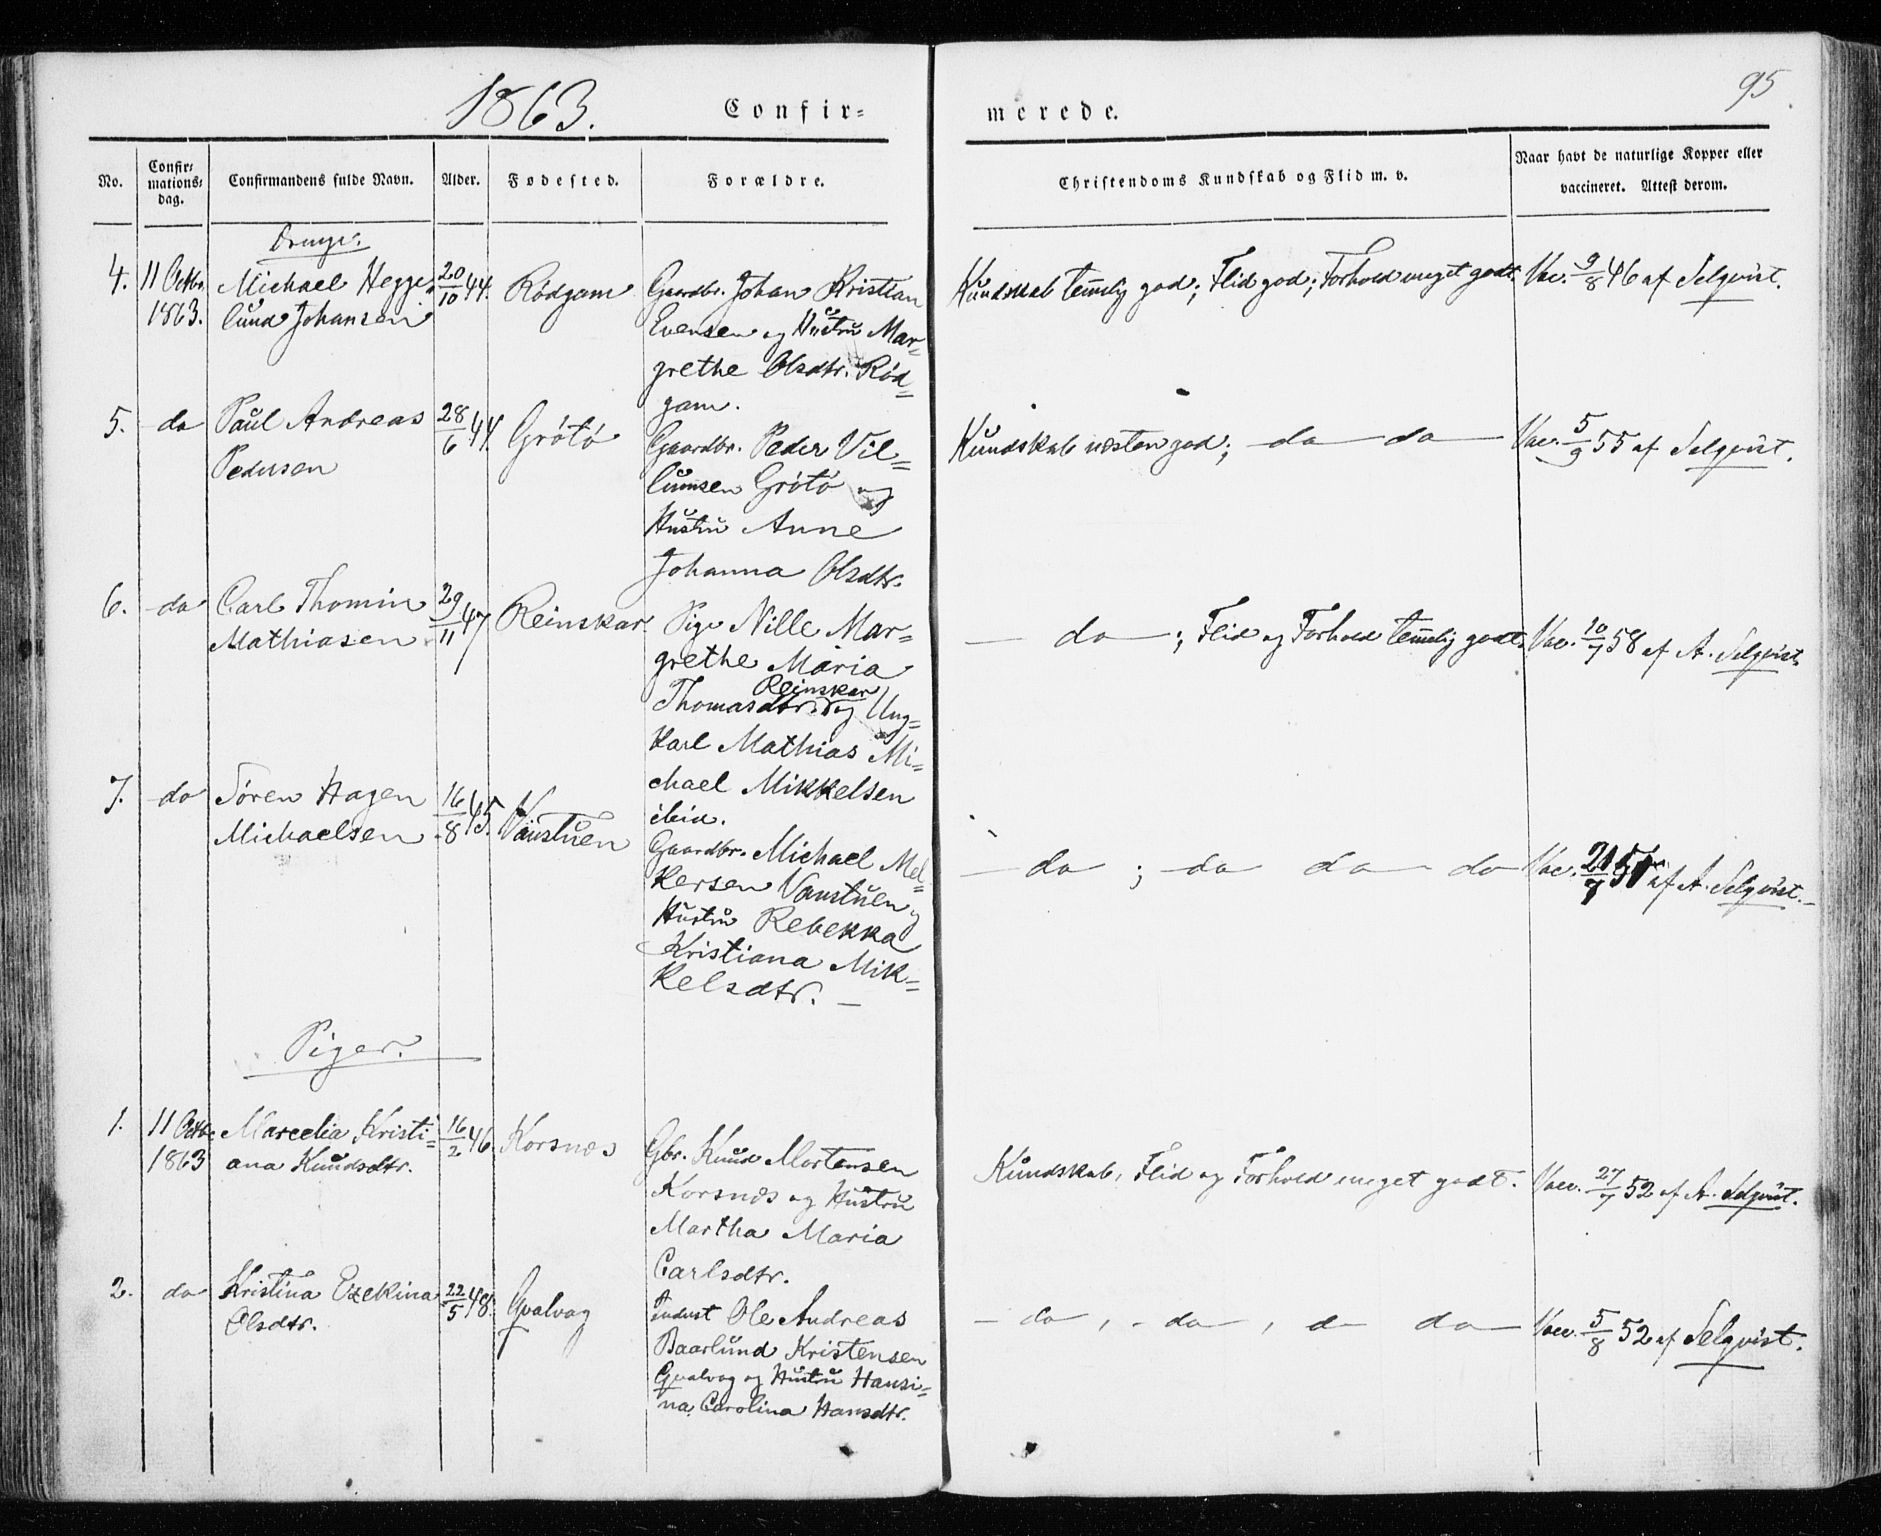 1863. Confir= merede. 95
No. Confir= mations= dag. Confirmandens fulde Navn. Alder. Fødested. Forældre. Christendoms Kundskab og Flid m. v. Naar havt de naturlige Kopper eller vaccineret. Attest derom.
Drenge.
4. 11 Octbr. 1863. Michael Hegge=
lund Johansen 20/10 44. Rödgam Gaardbr. Johan Kristian
Evensen og Hustru Mar=
grethe Olsdtr. Röd=
gam.
Kundskab temmelig god; Flid god; Forhold meget godt. Vac. 9/8 46 af Selqvist.
5. do Paul Andreas
Pedersen 28/6 44. Grötö Gaardbr. Peder Vil=
lumsen Grötö og
Hustru Anne
Johanna Olsdtr.
Kundskab næsten god; — do — do — Vac. 5/9 55 af Selqvist.
6. do Carl Thomin
Mathiasen 29/11 47 Reinskar Pige Nille Mar=
grethe Maria
Thomasdtr. Reinskar og Ung=
karl Mathias Mi=
chael Mikkelsen
ibid.
— do —; Flid og Forhold temmelig godt. Vac. 10/7 58 af A. Selqvist.
7. do Sören Hagen
Michaelsen 16/8 45. Vanstuen Gaardbr. Michael Mel=
kersen Vanstuen og
Hustru Rebekka
Kristiana Mik=
kelsdtr. —
— do — ; — do do — do Vac. 21/7 51 af A. Selqvist.
Piger.
1. 11 Octbr. 1863 Marcelia Kristi=
ana Knudsdtr. 16/2 46. Korsnæs Gbr. Knud Mortensen
Korsnæs og Hustru
Martha Maria
Carlsdtr.
Kundskab, Flid og Forhold meget godt. Vacc. 27/7 52 af A. Selqvist.
2. do Kristina Ezekina
Olsdtr. 22/5 48. Qvalvag Indust Ole Andreas
Baarlund Kristensen
Qvalvag og Hustru Hansi=
na Carolina Hansdtr.
— do, — do —, d— do — Vac. 5/8 52 af Selqvist.